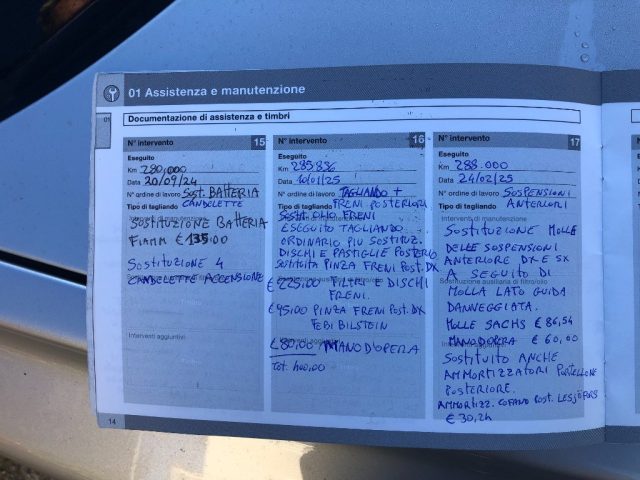 01 Assistenza e manutenzione
01
Documentazione di assistenza e timbri
N° intervento 15
Eseguito
Km 280,000
Data 20/09/24
N° ordine di lavoro SOST. BATTERIA
Tipo di tagliando CANDELETTE
Interventi di manutenzione
SOSTITUZIONE BATTERIA
FIAMM € 135,00
SOSTITUZIONE 4
CANDELETTE ACCENSIONE
Interventi aggiuntivi
N° intervento 16
Eseguito
Km 285,836
Data 10/01/25
N° ordine di lavoro TAGLIANDO +
Tipo di tagliando FRENI POSTERIORI
SOSTIT. OLIO FRENI
ESEGUITO TAGLIANDO
ORDINARIO PIÙ SOSTITUZ.
DISCHI E PASTIGLIE POSTERIO
SOSTITUITA PINZA FRENI POST. DX
€ 225,00 FILTRI E DISCHI
FRENI.
€ 95,00 PINZA FRENI POST. DX
FEBI BILSTEIN
Interventi aggiuntivi
€ 80,00 MANODOPERA
TOT. 400,00
N° intervento 17
Eseguito
Km 288.000
Data 24/02/25
N° ordine di lavoro SOSPENSIONI
Tipo di tagliando ANTERIORI
Interventi di manutenzione
SOSTITUZIONE MOLLE
DELLE SOSPENSIONI
ANTERIORE DX E SX
A SEGUITO DI
Sostituzione ausiliaria di filtro/olio
MOLLA LATO GUIDA
DANNEGGIATA.
MOLLE SACHS € 86,54
MANODOPERA € 60,00
SOSTITUITO ANCHE
AMMORTIZZATORI PORTELLONE
POSTERIORE.
AMMORTIZZ. COFANO POST. LESJÖFORS
€ 30,24
14